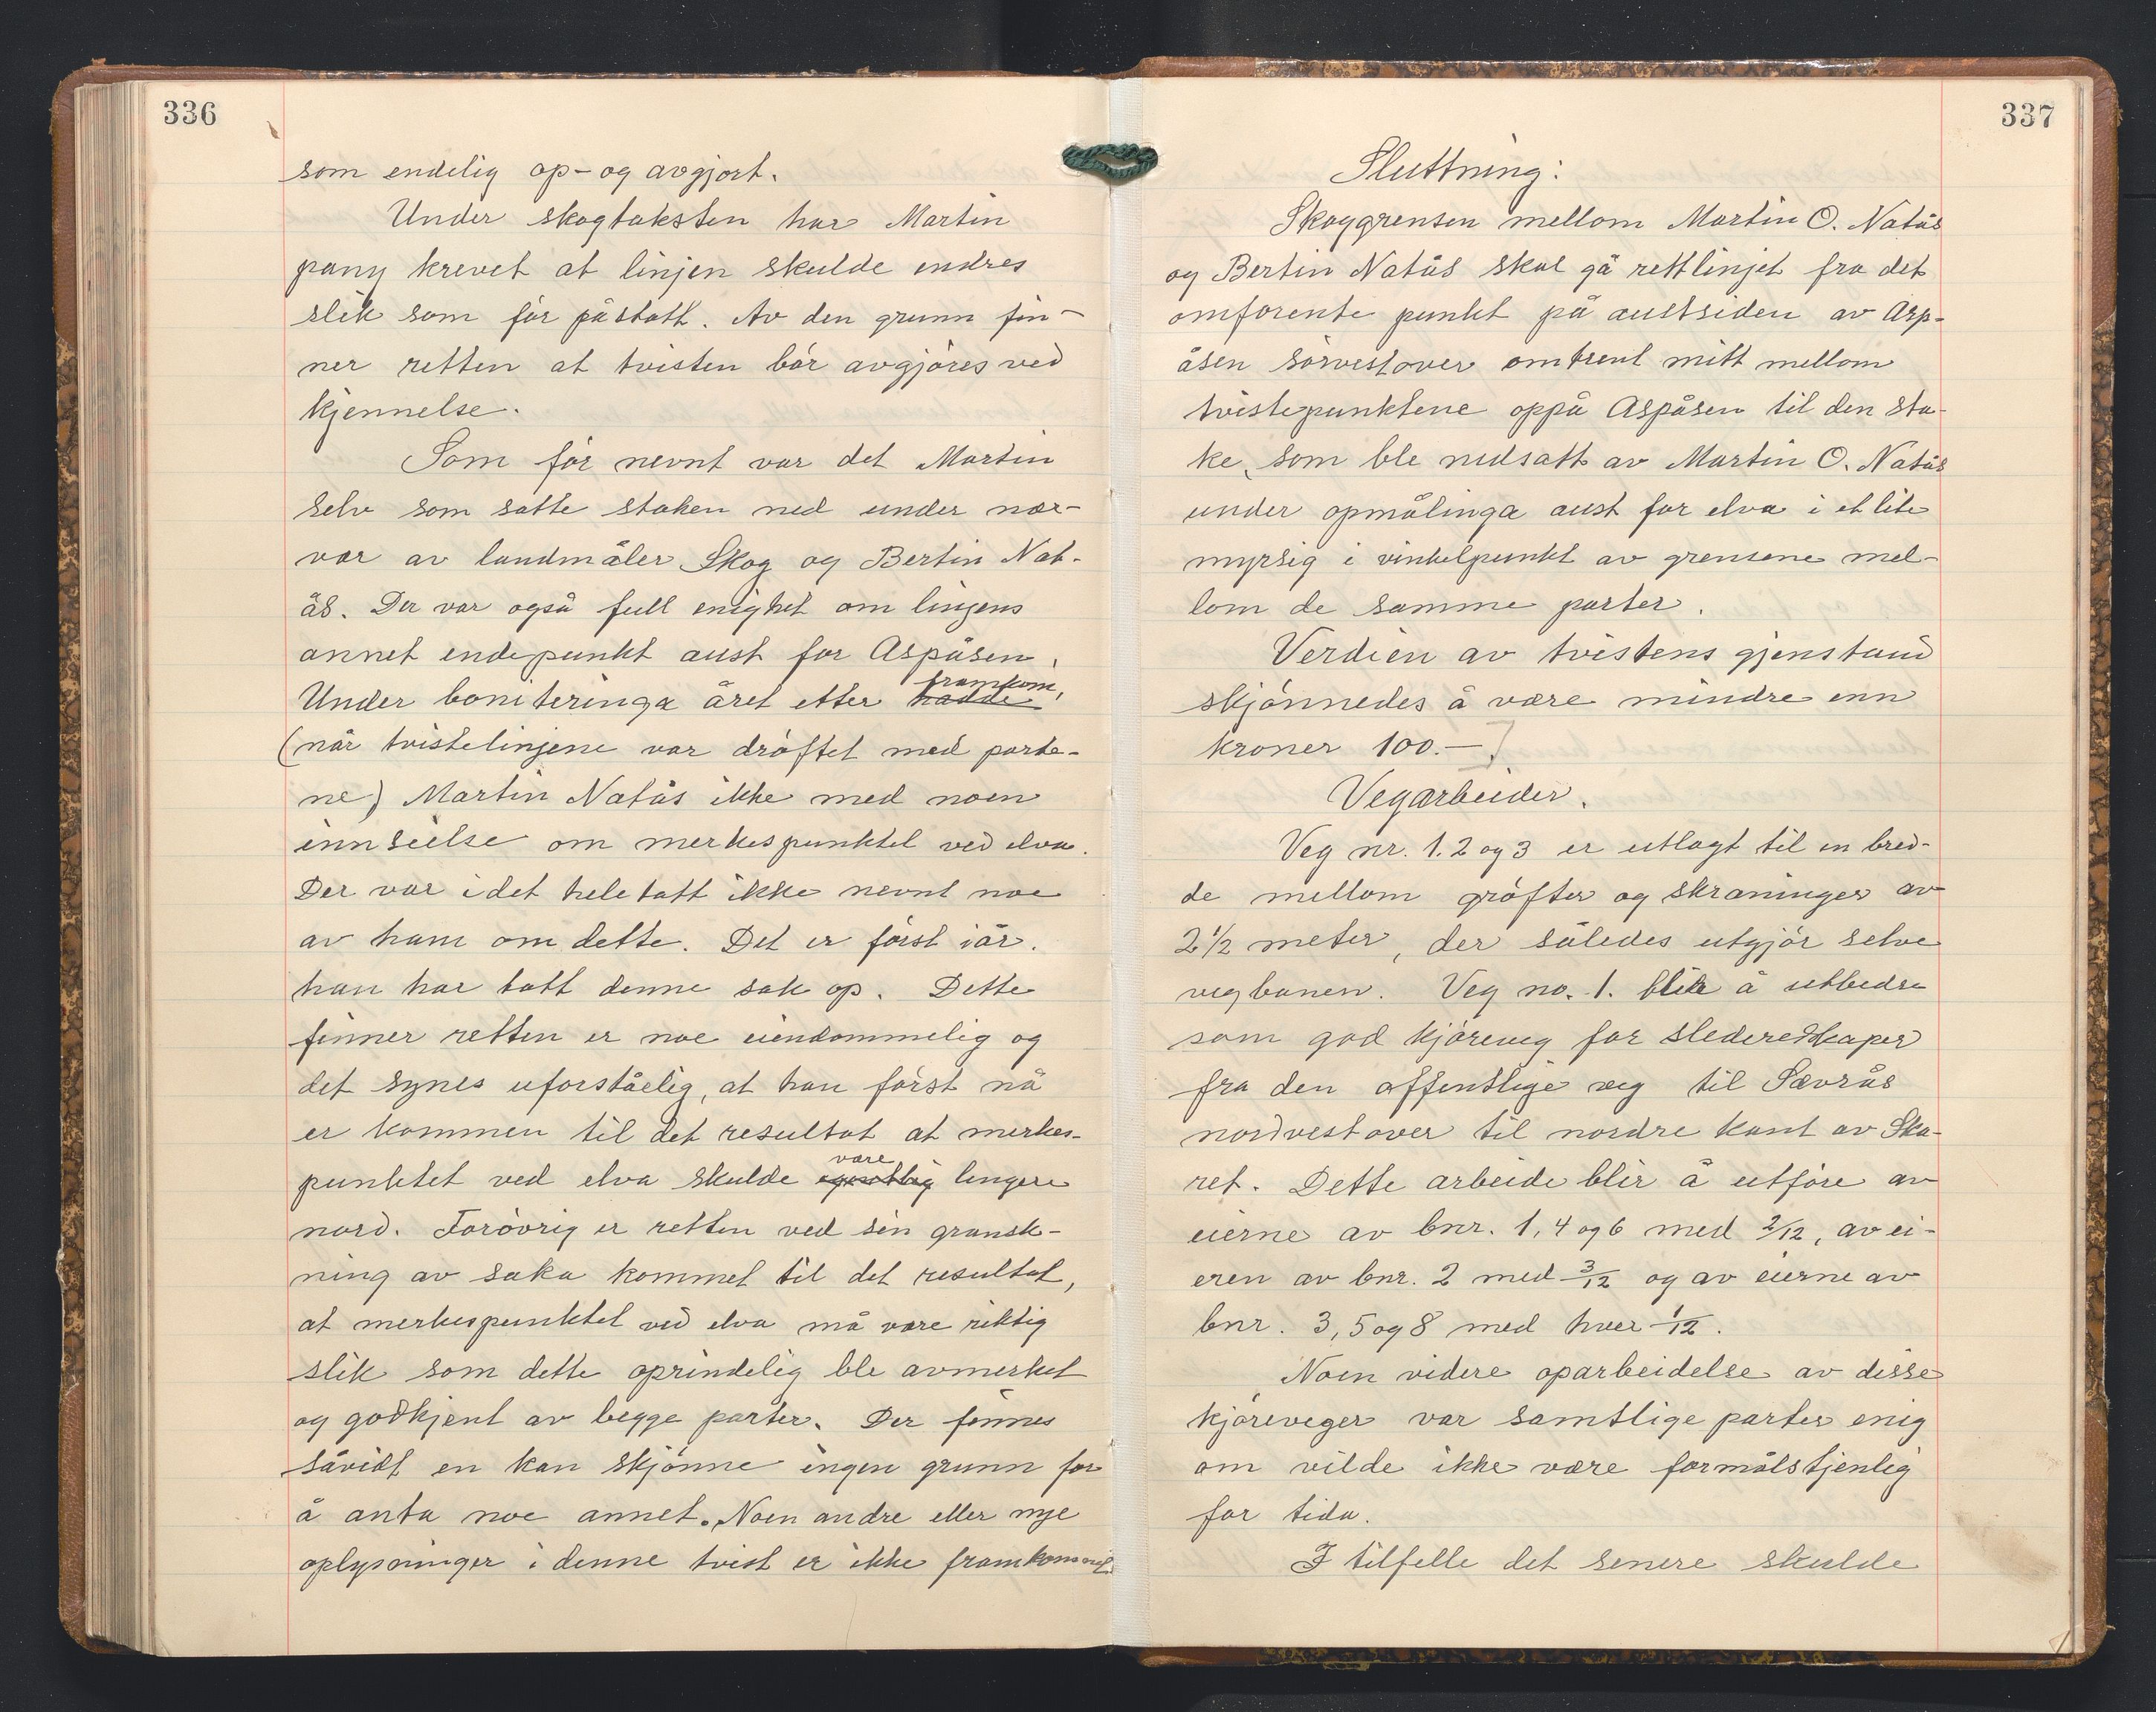 336
som endelig op- og avgjort.
Under skogtaksten har Martin
pany krevet at linjen skulde endres
slik som för påstått. Av den grunn fin-
ner retten at tvisten bör avgjöres ved
kjennelse.
Som för nevnt var det Martin
selv som satte staken ned under nær-
vær av landmåler Skog og Bertin Nat-
ås. Der var også full enighet om linjens
annet endepunkt aust for Aspåsen.
framkom,
Under boniteringa året etter hadde
(når tvistelinjene var dröftet med parte-
ne) Martin Natås ikke med noen
innseielse om merkespunktet ved elva.
Der var i det hele tatt ikke nevnt noe
av ham om dette. Det er först i år.
han har tatt denne sak op. Dette
finner retten er noe eiendommelig og
det synes uforståelig, at han först nå
er kommen til det resultat at merkes-
være
punktet ved elva skulde egentlig lengere
nord. Foròvrig er retten ved sin gransk-
ning av saka kommet til det resultat,
at merkespunktet ved elva må være riktig
slik som dette oprindelig ble avmerket
og godkjent av begge parter. Der finnes
såvidt en kan skjönne ingen grunn for
å anta noe annet. Noen andre eller nye
oplysninger i denne tvist er ikke framkommet
337
Sluttning:
Skoggrensen mellom Martin O. Natås
og Bertin Natås skal gå rettlinjet fra det
omforente punkt på austsiden av Asp-
åsen sörvestover omtrent mitt mellom
tvistepunktene oppå Aspåsen til den sta-
ke, som ble nedsatt av Martin O. Natås
under opmålinga aust for elva i et lite
myrsig i vinkelpunkt av grensene mel-
lom de samme parter.
Verdien av tvistens gjenstand
skjönnedes å være mindre enn
kroner 100.-
Vegarbeider.
Veg nr. 1. 2 og 3 er utlagt til en bred-
de mellom gröfter og skråninger av
2 1/2 meter, der således utgjör selve
vegbanen. Veg no. 1. blir å utbedre
som god kjöreveg for slederedskaper
fra den offentlige veg til Sævrås
nordvestover til nordre kant av Ska-
ret. Dette arbeide blir å utföre av
eierne av bnr. 1, 4 og 6 med 2/12, av ei-
eren av bnr. 2 med 3/12 og av eierne av
bnr. 3, 5 og 8 med hver 1/12.
Noen videre oparbeidelse av disse
kjöreveger var samtlige parter enig
om vilde ikke være formålstjenlig
for tida.
I tilfelle det senere skulde